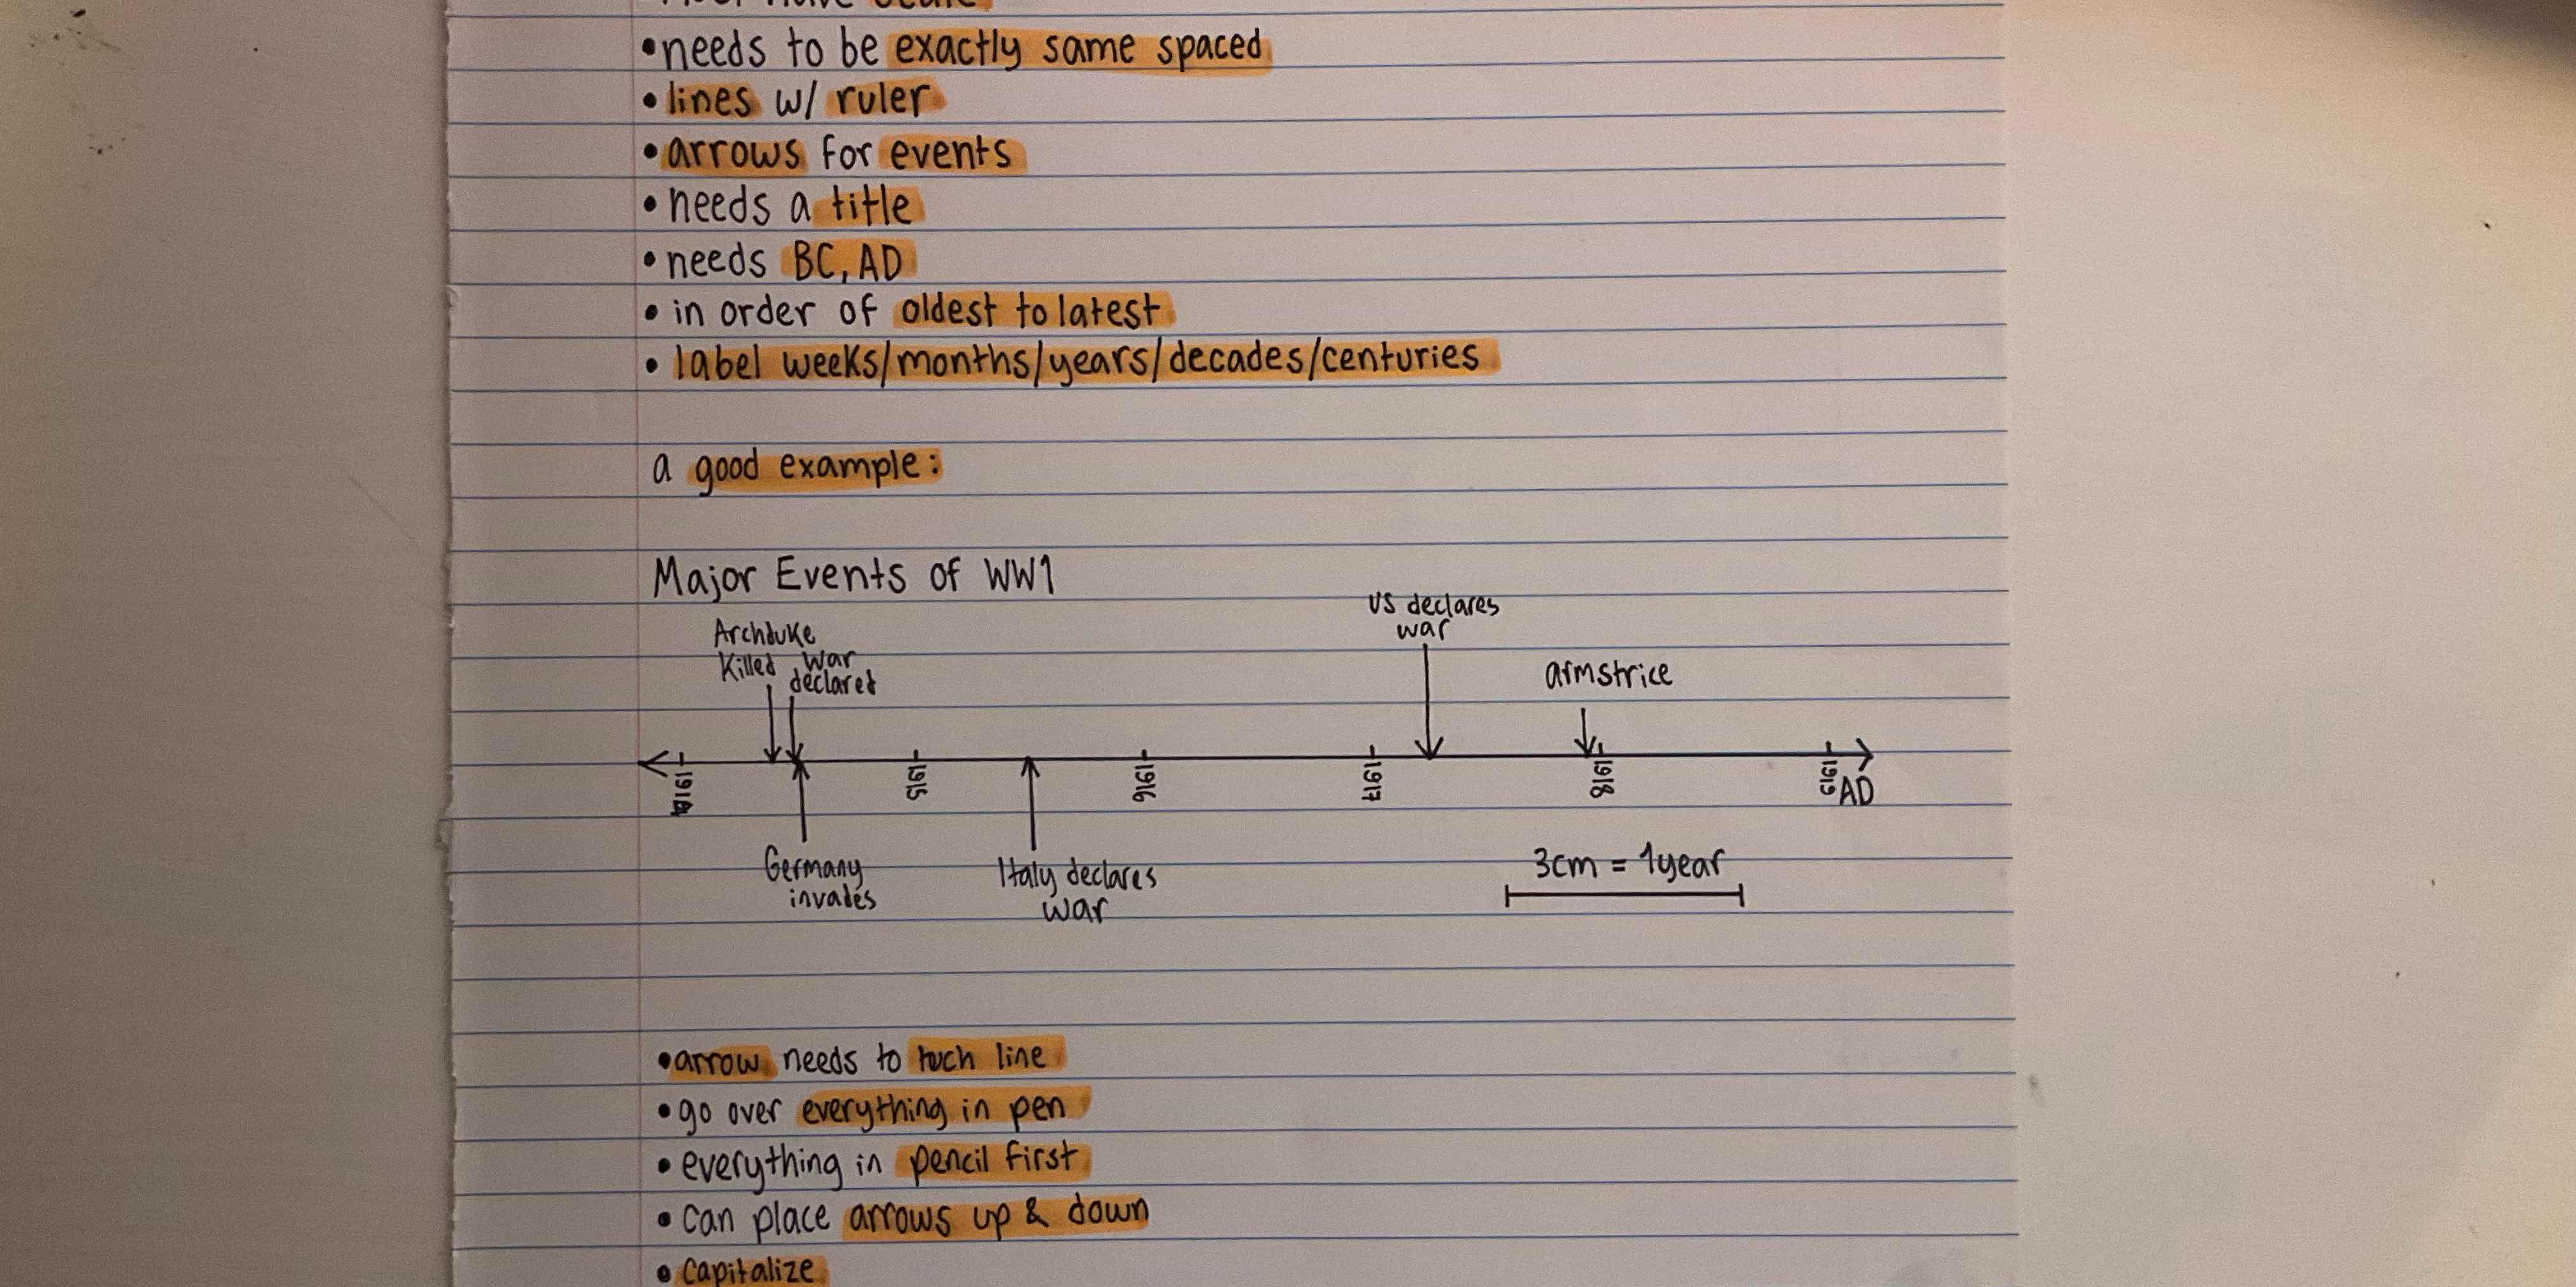 • needs to be exactly same spaced
• lines w/ ruler
• arrows for events
• needs a title
• needs BC, AD
• in order of oldest to latest
• label weeks/months/years/decades/centuries
a good example:
Major Events of WW1
US declares
war
Archduke
Killed
War
declared
armstrice
1914
1915
1916
1917
1918
1919
AD
Germany
invades
Italy declares
war
3cm = 1year
• arrow needs to tuch line
• go over everything in pen
• everything in pencil first
• can place arrows up & down
• capitalize